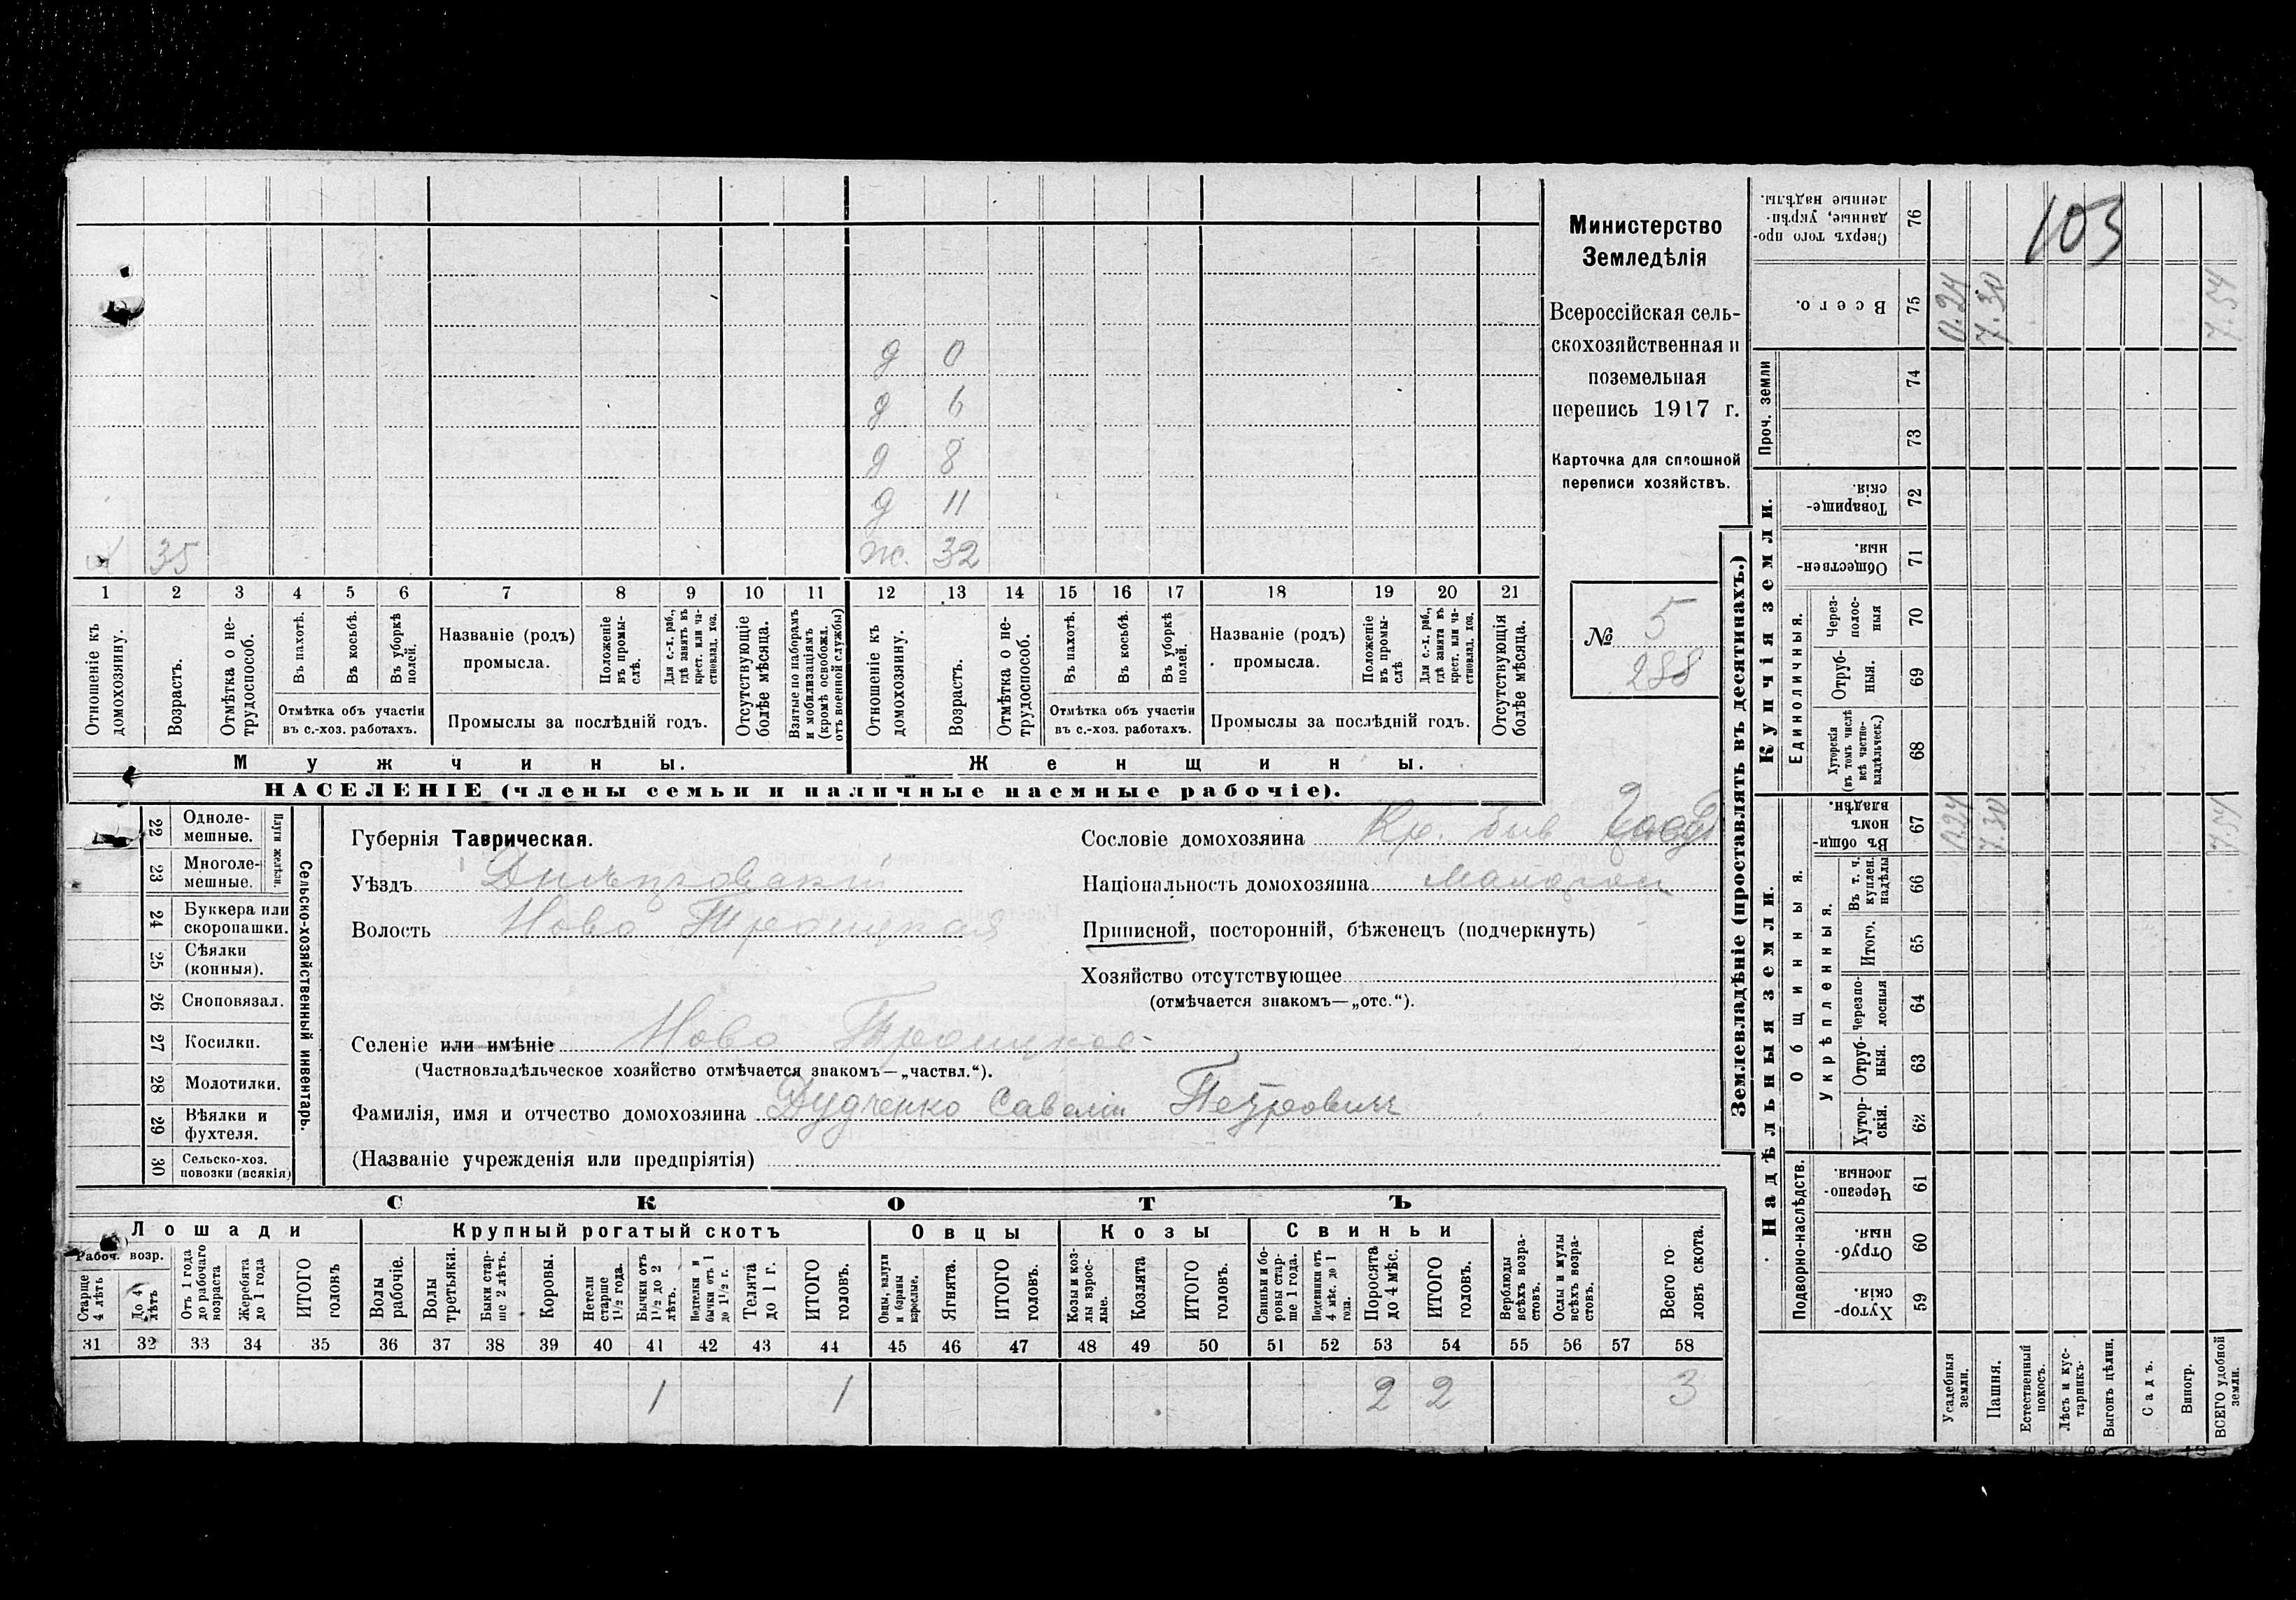 103
Министерство
Земледѣлія
Всероссійская сель-
скохозяйственная и
поземельная
перепись 1917 г.
Карточка для сплошной
переписи хозяйствъ.
№ 5
288
д 0
д 6
д 8
д 11
35 ж. 32
1 2 3 4 5 6 7 8 9 10 11 12 13 14 15 16 17 18 19 20 21
Отношеніе къ домохозяину.
Возрастъ.
Отмѣтка о не-трудоспособ.
Въ пахотѣ.
Въ косьбѣ.
Въ уборкѣ полей.
Отмѣтка объ участіи
въ с.-хоз. работахъ.
Названіе (родъ)
промысла.
Положеніе въ промы-слѣ.
Для с.-х. раб., гдѣ занятъ въ крест. или ча-стновлад. хоз.
Промыслы за послѣдній годъ.
Отсутствующіе болѣе мѣсяца.
Взятые по наборамъ и мобилизаціямъ (кромѣ освобожд. отъ военной службы)
Отношеніе къ домохозяину.
Возрастъ.
Отмѣтка о не-трудоспособ.
Въ пахотѣ.
Въ косьбѣ.
Въ уборкѣ полей.
Отмѣтка объ участіи
въ с.-хоз. работахъ.
Названіе (родъ)
промысла.
Положеніе въ промы-слѣ
Для с.-х. раб., гдѣ занята въ крест. или ча-стновлад. хоз.
Промыслы за послѣдній годъ.
Отсутствующія болѣе мѣсяца.
Мужчины. Женщины.
НАСЕЛЕНІЕ (члены семьи и наличные наемные рабочіе).
22 Одноле-мешные.
23 Многоле-мешные.
Плуги желѣзн.
24 Буккера или скоропашки.
25 Сѣялки (конныя).
26 Сноповязал.
27 Косилки.
28 Молотилки.
29 Вѣялки и фухтеля.
30 Сельско-хоз. повозки (всякія)
Сельско-хозяйственный инвентарь.
Губернія Таврическая.
Уѣздъ Днѣпровскій
Волость Ново Троицкая
Селеніе или имѣніе Ново Троицкое
(Частновладѣльческое хозяйство отмѣчается знакомъ—„частвл.“).
Фамилія, имя и отчество домохозяина Дудченко Савелій Петрович
(Названіе учрежденія или предпріятія)
Сословіе домохозяина Кр. бив
Національность домохозяина Малорос
Приписной, посторонній, бѣженецъ (подчеркнуть)
Хозяйство отсутствующее
(отмѣчается знакомъ—„отс.“).
СКОТЪ
Лошади Крупный рогатый скотъ Овцы Козы Свиньи
Рабоч. возр.
Старше 4 лѣтъ
До 4 лѣтъ
Отъ 1 года до рабочаго возраста
Жеребята до 1 года
ИТОГО головъ
Волы рабочіе.
Волы третьяки.
Быки стар-ше 2 лѣтъ.
Коровы.
Нетели старше 1½ года.
Бычки отъ 1½ до 2 лѣтъ.
Подтелки и бычки отъ 1 до 1½ г.
Телята до 1 г.
ИТОГО головъ.
Овцы, валухи и бараны взрослые.
Ягнята.
ИТОГО головъ.
Козы и коз-лы взрос-лые.
Козлята
ИТОГО головъ.
Свиньи и бо-ровы стар-ше 1 года.
Подсвинки отъ 4 мѣс. до 1 года.
Поросята до 4 мѣс.
ИТОГО головъ.
Верблюды всѣхъ возра-стовъ.
Ослы и мулы всѣхъ возра-стовъ.
Всего го-ловъ скота.
31 32 33 34 35 36 37 38 39 40 41 42 43 44 45 46 47 48 49 50 51 52 53 54 55 56 57 58
1 1 2 2 3
Землевладѣніе (проставлять въ десятинахъ.)
Надѣльныя земли.
Купчія земли.
Проч. земли
Подворно-наслѣдств.
Общинныя.
Укрѣпленныя.
Единоличныя.
Сверхъ того про-данные, укрѣп-ленные надѣлы. 76
Всего. 75 0.24 7.30 7.54
74
73
Товарище-скія. 72
Обществен-ныя. 71
Через-полос-ныя 70
Отруб-ныя. 69
Хуторскія (въ томъ числѣ всѣ частно-владѣльческ.) 68
Въ общин-номъ владѣн. 67 0.24 7.30 7.54
Въ т. ч. куплен. надѣлы 66
Итого. 65
Черезпо-лосныя 64
Отруб-ныя. 63
Хутор-скія. 62
Черезпо-лосныя. 61
Отруб-ныя. 60
Хутор-скія. 59
Усадебныя земли.
Пашня.
Естественный покосъ.
Лѣсъ и кус-тарникъ.
Выгонъ цѣлин.
Садъ.
Виногр.
ВСЕГО удобной земли.